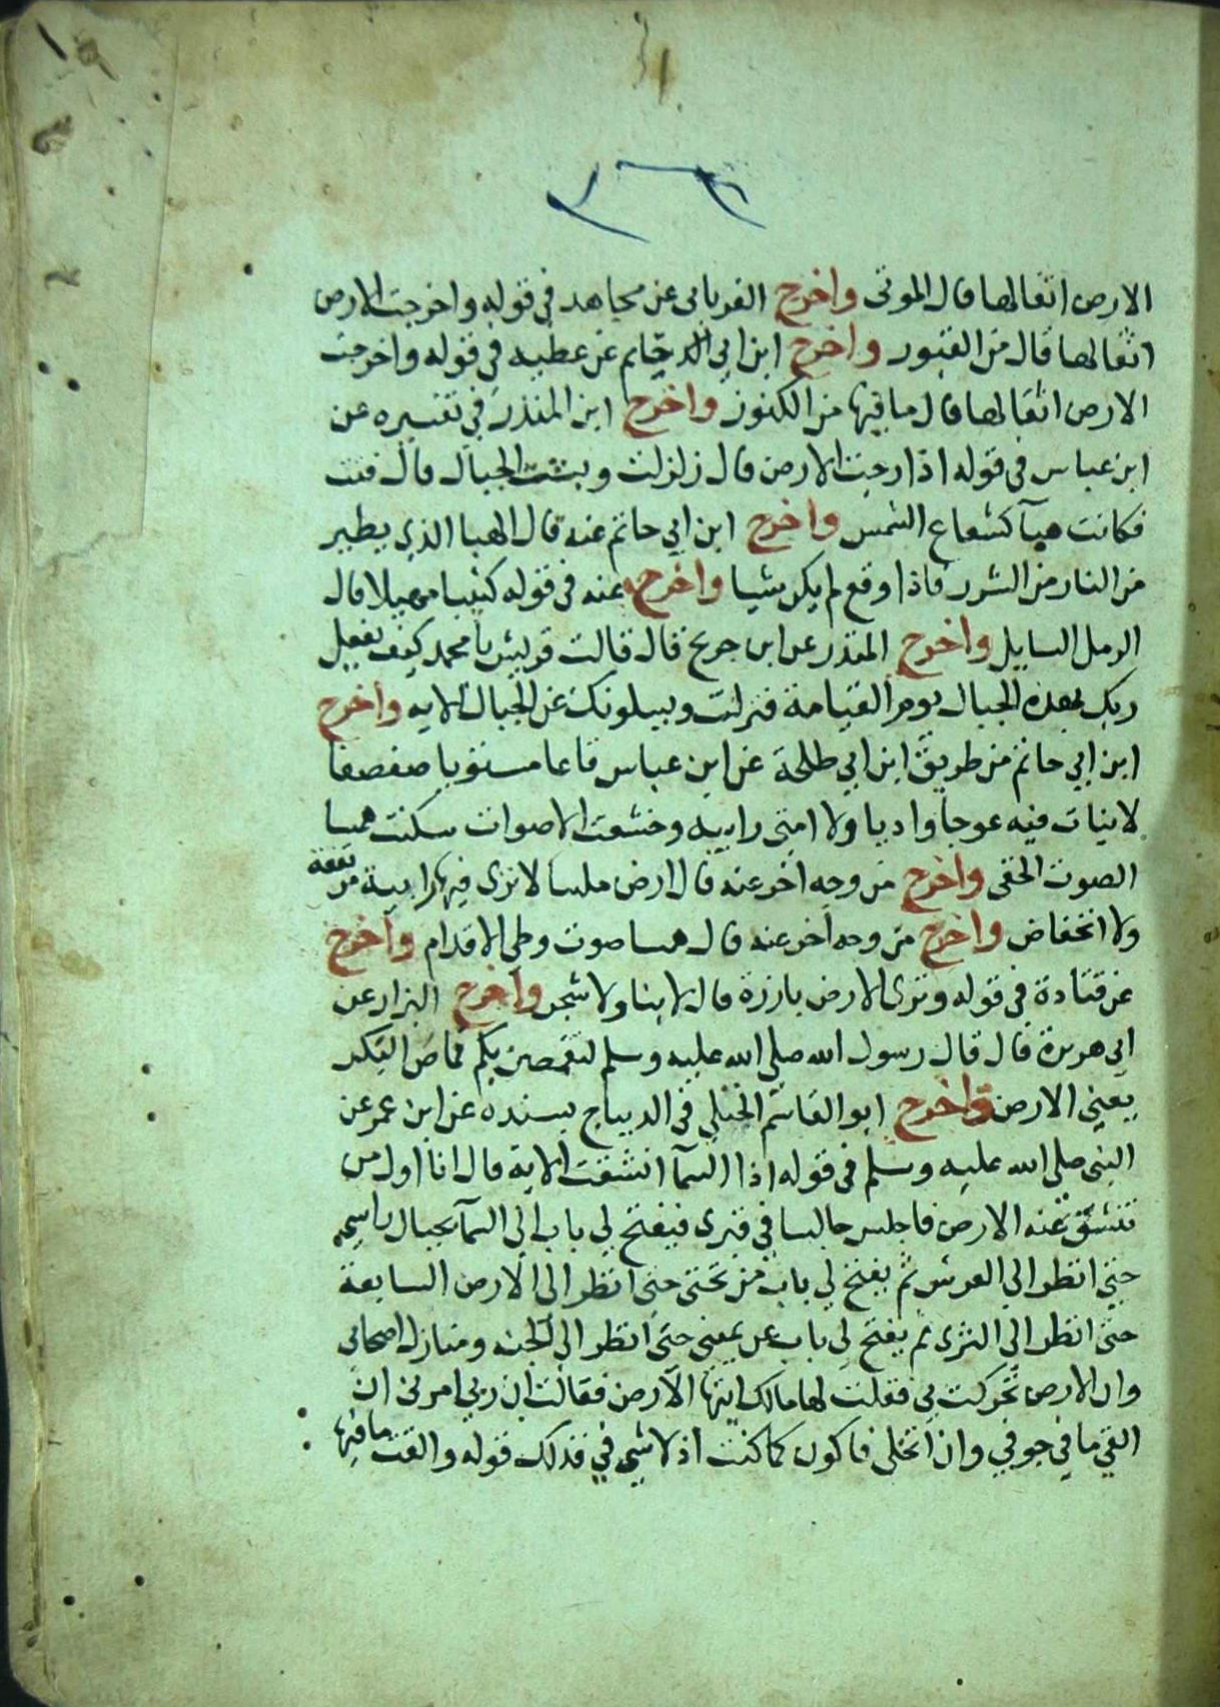 الارض اثقالها قال الموتى واخرج الفريابى عن مجاهد فى قوله واخرجت الارض
اثقالها قال من القبور واخرج ابن ابي حاتم عن عطيه في قوله واخرجت
الارض اثقالها قال ما فيها من الكنوز واخرج ابن المنذر في تفسيره عن
ابن عباس فى قوله اذا رجت الارض قال زلزلت وبست الجبال قال فتت
فكانت هبآ كشعاع الشمس واخرج ابن ابي حاتم عنه قال الهبا الذي يطير
من النار من الشرر فاذا وقع لم يكن شيا واخرج عنه فى قوله كثيبا مهيلا قال
الرمل السايل واخرج المنذر عن ابن جريج قال قالت قريش يا محمد كيف يفعل
ربك بهذه الجبال يوم القيامة فنزلت ويسيلونك عن الجبال الايه واخرج
ابن ابي حاتم من طريق ابن ابي طلحة عن ابن عباس قاعا مستويا صفصفا
لا نبات فيه عوجا واديا ولا امتى رابيه وخشعت الاصوات سكنت همسا
الصوت الخفى واخرج من وجه اخر عنه قال ارض ملسا لا ترى فيها رابية مرتفعة
ولا انخفاض واخرج من وجه اخر عنه قال همسا صوت وطي الاقدام واخرج
عن قتادة في قوله وترى الارض بارزة قال لا بنا ولا شجر واخرج البزار عن
ابي هريرة قال قال رسول الله صلى الله عليه وسلم لتقمصن بكم قماص البكر
يعني الارض واخرج ابو القاسم الختلي في الديباج بسنده عن ابن عمر عن
النبى صلى الله عليه وسلم فى قوله اذا السمآ انشقت الاية قال انا اول من
تنشق عنه الارض فاجلس جالسا في قبرى فيفتح لي باب الي السمآ بحيال راسي
حتى انظر الي العرش ثم يفتح لي باب من تحتى حتى انظر الى الارض السابعة
حتى انظر الي الثرى ثم يفتح لي باب عن يمينى حتى انظر الى الجنه ومنازل اصحابى
وان الارض تحركت بي فقلت لها مالك ايتها الارض فقالت ان ربي امرنى ان
القي ما في جوفي وان اتخلى فاكون كما كنت اذ لا شي في فذلك قوله والقت ما فيها